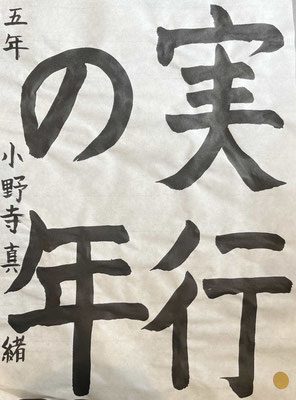 実行
の年
五年 小野寺真緒